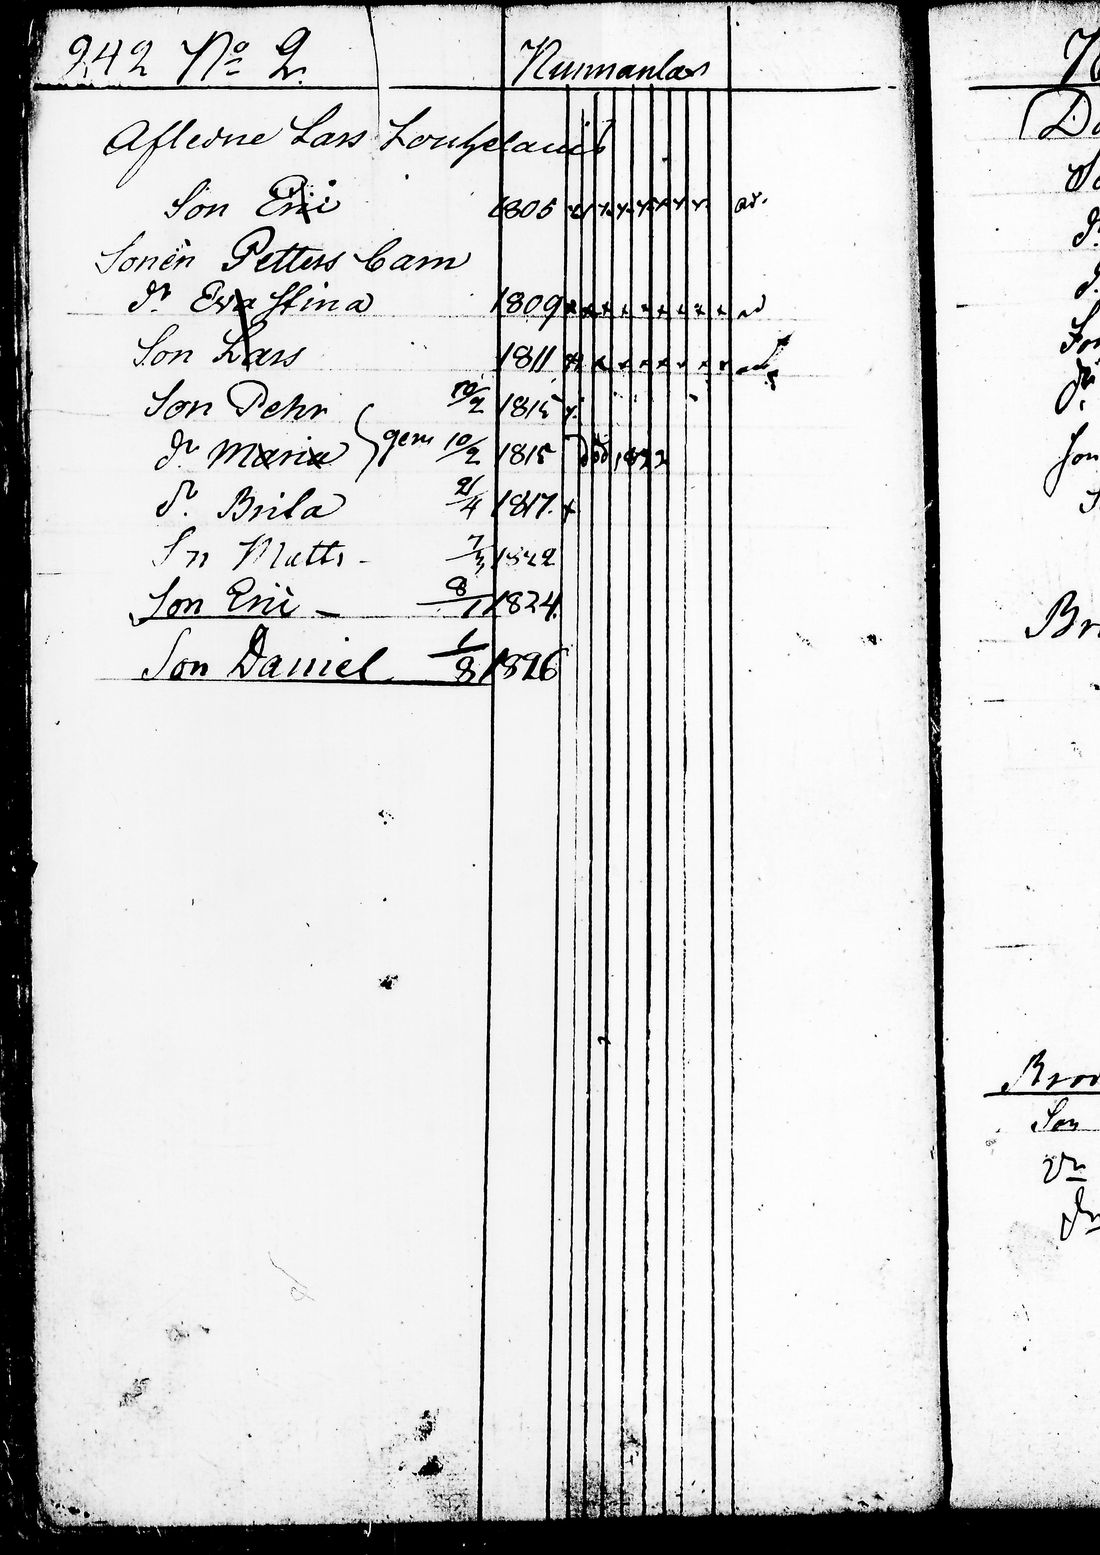 242 No 2. Nurmanlax
Afledne Lars
Son Eric 1805
Sonen Petters Barn
dr. Eva Stina 1809
Son Lars 1811
Son Pehr 10/2 1815
dr. Maria gem 10/2 1815 död 1822
dr. Brita 21/4 1817.
Sn Matts 7/3 1822
Son Eric 8/1 1824.
Son Daniel 1/8 1826
Son
dr